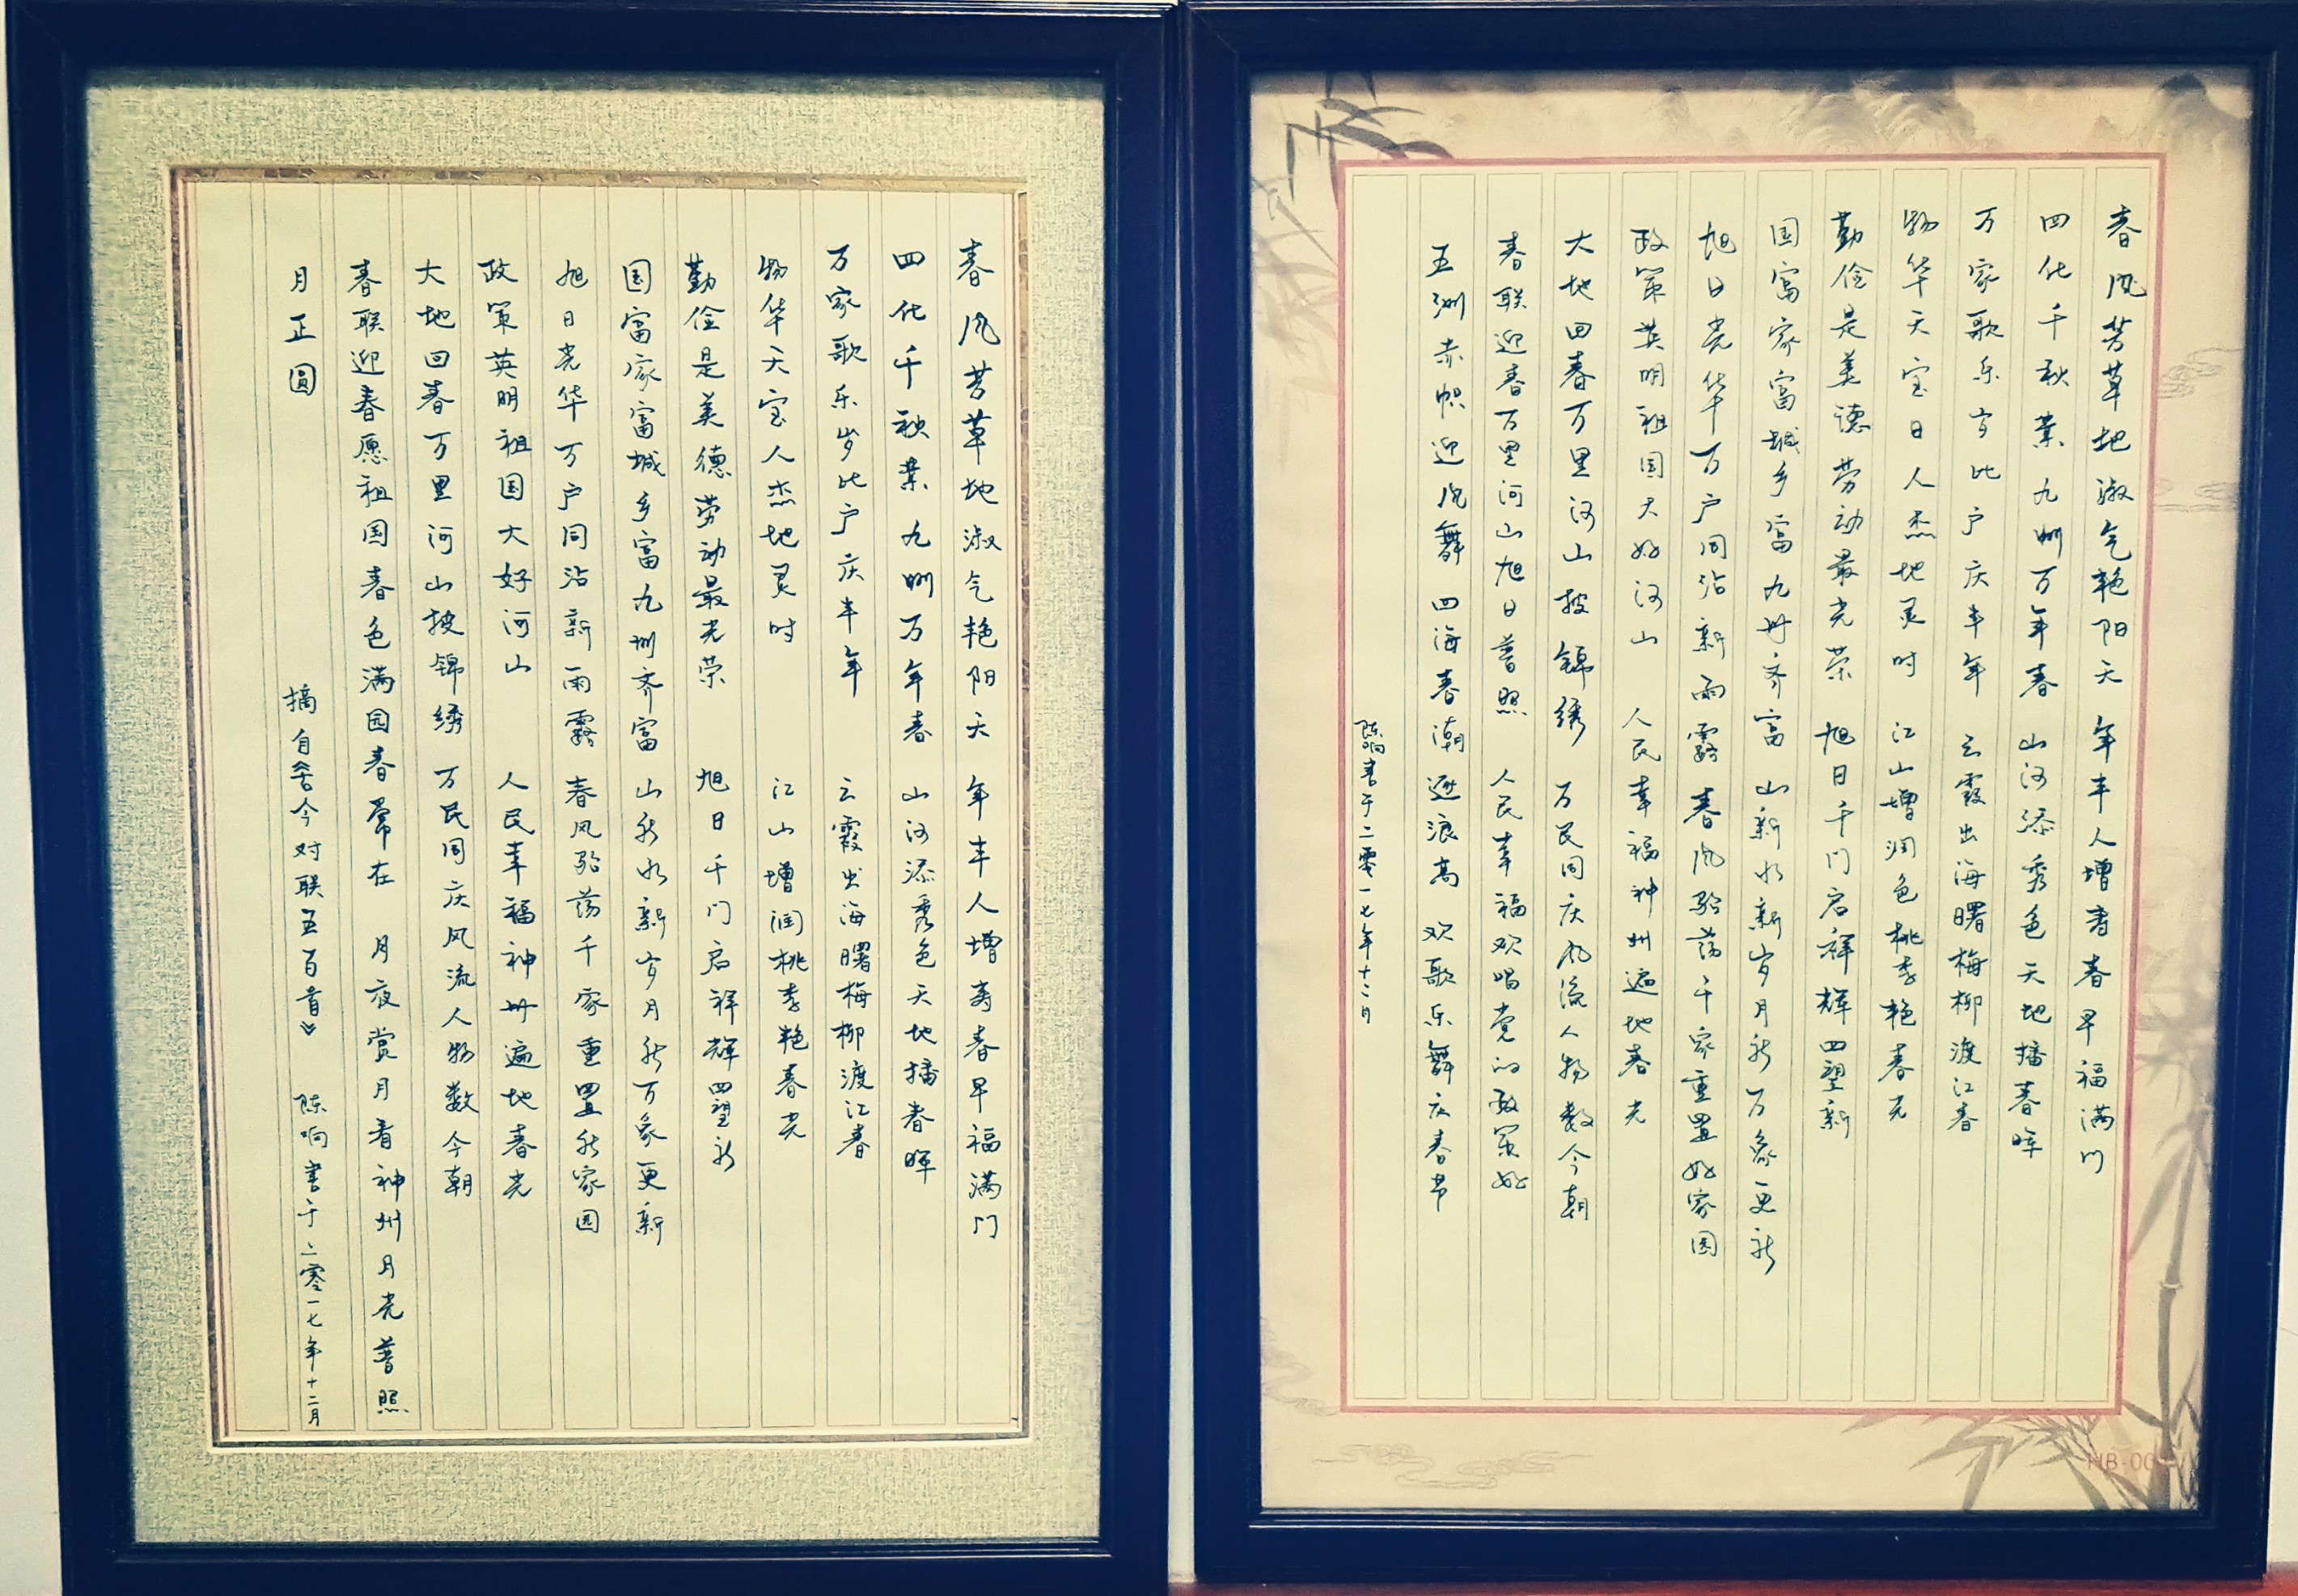 春风芳草地淑气艳阳天 年丰人增寿春早福满门
四化千秋业九州万年春 山河添秀色天地播春晖
万家歌乐岁比户庆丰年 云霞出海曙梅柳渡江春
物华天宝日人杰地灵时 江山增润色桃李艳春光
勤俭是美德劳动最光荣 旭日千门启祥辉四望新
国富家富城乡富九州齐富 山新水新岁月新万象更新
旭日光华万户同沾新雨露 春风骀荡千家重置好家园
政策英明祖国大好河山 人民幸福神州遍地春光
大地回春万里河山披锦绣 万民同庆风流人物数今朝
春联迎春万里河山旭日普照 人民幸福欢唱党的政策好
五洲赤帜迎风舞 四海春潮逐浪高 欢歌乐舞庆春节
陈响书于二零一七年十二月
HB-00
春风芳草地淑气艳阳天 年丰人增寿春早福满门
四化千秋业九州万年春 山河添秀色天地播春晖
万家歌乐岁比户庆丰年 云霞出海曙梅柳渡江春
物华天宝人杰地灵时 江山增润桃李艳春光
勤俭是美德劳动最光荣 旭日千门启祥辉四望新
国富家富城乡富九州齐富 山新水新岁月新万象更新
旭日光华万户同沾新雨露 春风骀荡千家重置新家园
政策英明祖国大好河山 人民幸福神州遍地春光
大地回春万里河山披锦绣 万民同庆风流人物数今朝
春联迎春愿祖国春色满园春常在 月夜赏月看神州月光普照
月正圆 摘自《古今对联五百首》 陈响书于二零一七年十二月